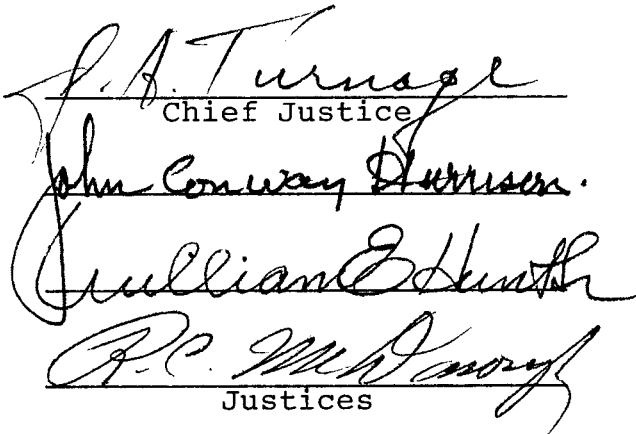 J. A. Turnage
Chief Justice
John Conway Harrison.
William E Hunth
R. C. McDonough
Justices